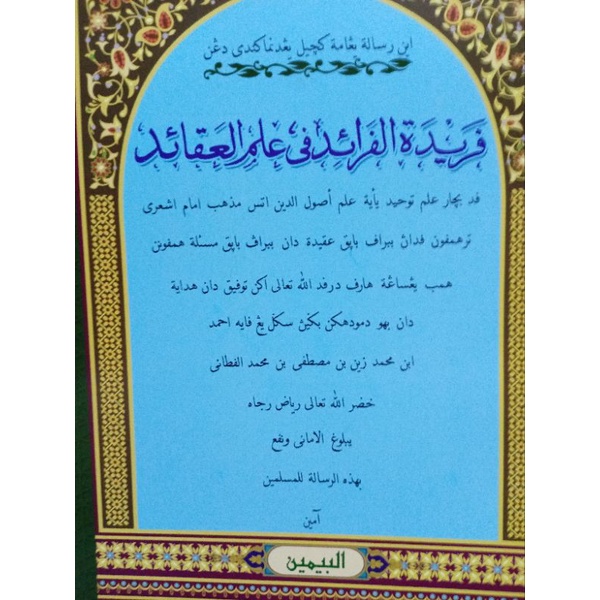 اين رسالة يڠ امة كچيل يڠدنماكندي دڠن
فريدة الفرائد في علم العقائد
فد بچار علم توحيد يأيت علم أصول الدين اتس مذهب امام اشعري
ترهمفون فداڽ ببراف باپق عقيدة دان ببراف باپق مسئلة همفونن
همب يڠ ساڠة هارف درفد الله تعالى اكن توفيق دان هداية
دان بهو دمودهكن بݢيڽ سكل يڠ فايه احمد
ابن محمد زين بن مصطفى بن محمد الفطاني
خضر الله تعالى رياض رجاه
يبلوغ الاماني ونفع
بهذه الرسالة للمسلمين
آمين
البيمين